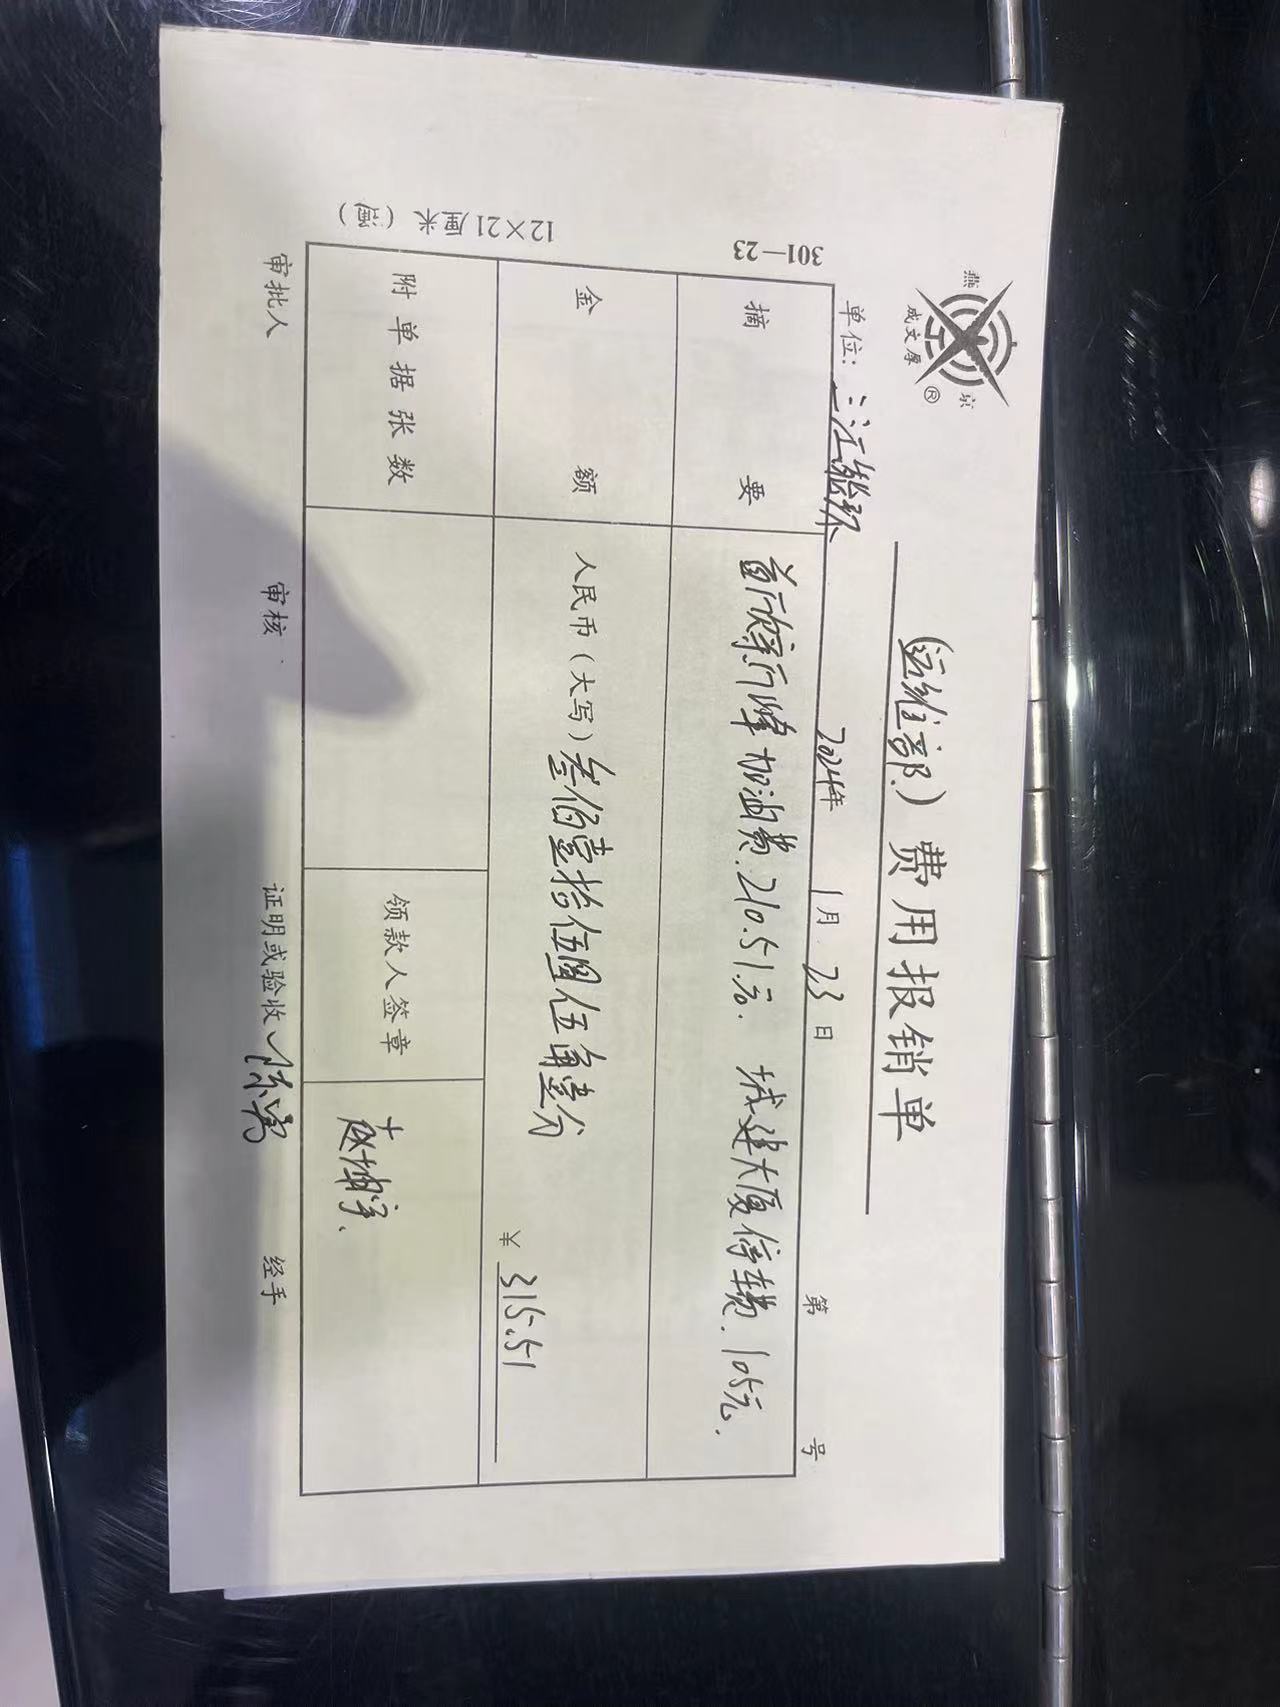 燕京
成文厚
®
(运维部.)费用报销单
单位:三江能环 2024年 1月 23日 第 号
摘要 加油费.210.51元. 城建大厦停车费.105元.
金额 人民币(大写)叁佰壹拾伍圆伍角壹分
¥ 315.51
附单据张数 领款人签章
审批人 审核 证明或验收 经手
301—23
12×21厘米(藏)